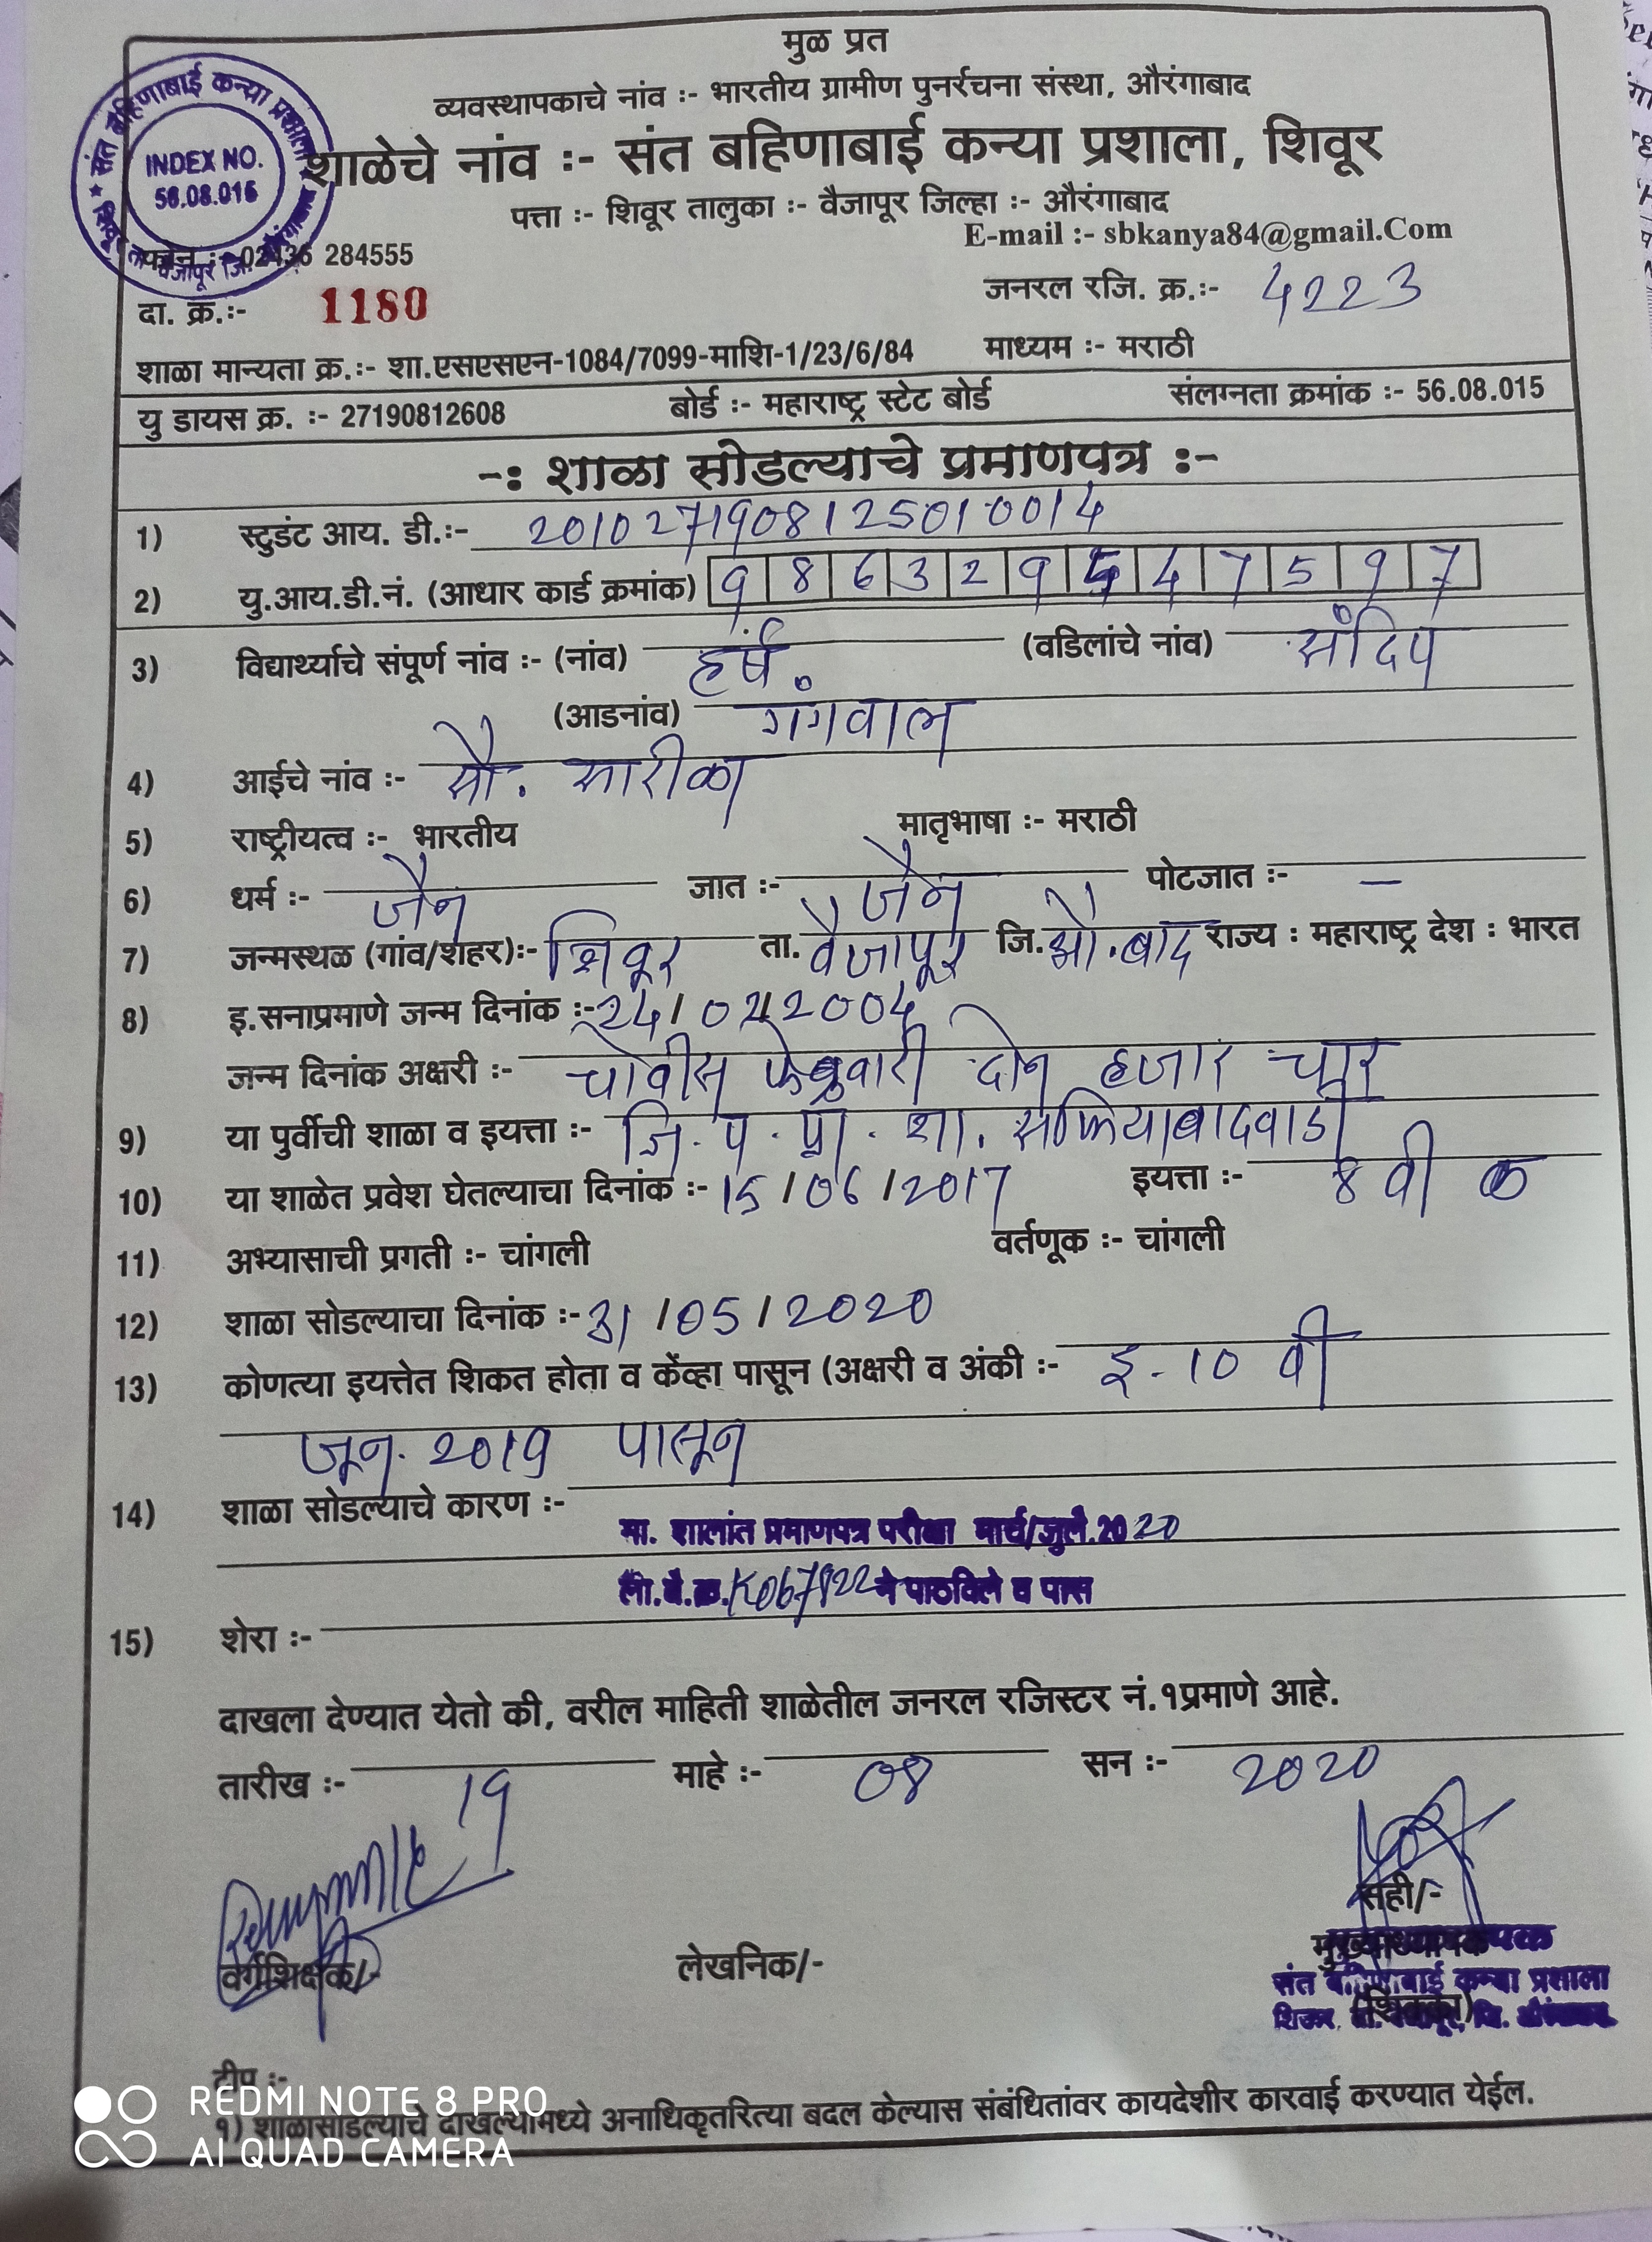 मुळ प्रत
व्यवस्थापकाचे नांव :- भारतीय ग्रामीण पुनर्रचना संस्था, औरंगाबाद
संत बहिणाबाई कन्या प्रशाला
INDEX NO.
56.08.015
शाळेचे नांव :- संत बहिणाबाई कन्या प्रशाला, शिवूर
पत्ता :- शिवूर तालुका :- वैजापूर जिल्हा :- औरंगाबाद
E-mail :- sbkanya84@gmail.Com
फोन :- 02436 284555
दा. क्र.:- 1180 जनरल रजि. क्र.:- 4223
शाळा मान्यता क्र.:- शा.एसएसएन-1084/7099-माशि-1/23/6/84 माध्यम :- मराठी
यु डायस क्र. :- 27190812608 बोर्ड :- महाराष्ट्र स्टेट बोर्ड संलग्नता क्रमांक :- 56.08.015
-: शाळा सोडल्याचे प्रमाणपत्र :-
1) स्टुडंट आय. डी.:- 2010271908125010014
2) यु.आय.डी.नं. (आधार कार्ड क्रमांक) 9 8 6 3 2 9 5 4 7 5 9 7
3) विद्यार्थ्याचे संपूर्ण नांव :- (नांव) हर्ष. (वडिलांचे नांव) संदिप
(आडनांव) गंगवाल
4) आईचे नांव :- सौ. सारीका
5) राष्ट्रीयत्व :- भारतीय मातृभाषा :- मराठी
6) धर्म :- जैन जात :- जैन पोटजात :- —
7) जन्मस्थळ (गांव/शहर):- शिवूर ता. वैजापूर जि. औ.बाद राज्य : महाराष्ट्र देश : भारत
8) इ.सनाप्रमाणे जन्म दिनांक :- 24/02/2004
जन्म दिनांक अक्षरी :- चोवीस फेब्रुवारी दोन हजार चार
9) या पुर्वीची शाळा व इयत्ता :- जि. प. प्रा. शा. सफियाबादवाडी
10) या शाळेत प्रवेश घेतल्याचा दिनांक :- 15/06/2017 इयत्ता :- 8 वी क
11) अभ्यासाची प्रगती :- चांगली वर्तणूक :- चांगली
12) शाळा सोडल्याचा दिनांक :- 31/05/2020
13) कोणत्या इयत्तेत शिकत होता व केंव्हा पासून (अक्षरी व अंकी :- इ. 10 वी
जून. 2019 पासून
14) शाळा सोडल्याचे कारण :-
मा. शालांत प्रमाणपत्र परीक्षा मार्च/जुलै.2020
ने पाठविले व पास
15) शेरा :-
दाखला देण्यात येतो की, वरील माहिती शाळेतील जनरल रजिस्टर नं.१प्रमाणे आहे.
तारीख :- 19 माहे :- 08 सन :- 2020
सही/-
वर्गशिक्षक/- लेखनिक/- मुख्याध्यापक
संत बहिणाबाई कन्या प्रशाला
(शिक्का)
टीप :-
१) शाळासोडल्याचे दाखल्यामध्ये अनाधिकृतरित्या बदल केल्यास संबंधितांवर कायदेशीर कारवाई करण्यात येईल.
REDMI NOTE 8 PRO
AI QUAD CAMERA